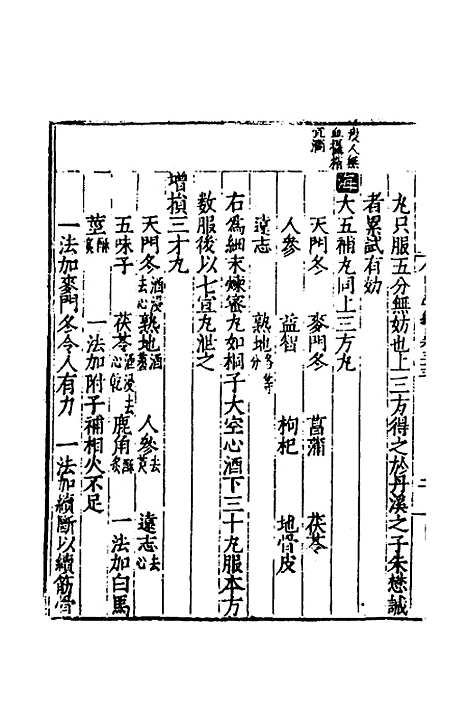 丸只服五分無妨也上三方得之於丹溪之子朱懋誠
者累試有効
海大五補丸同上三方丸
天門冬 麥門冬 菖蒲 茯苓
人參 益智 枸杞 地骨皮
遠志 熟地各等分
右爲細末煉蜜丸如桐子大空心酒下三十丸服本方
數服後以七宣丸泄之
增損三才丸
天門冬酒浸去心 熟地酒蒸 人參去蘆 遠志去心
五味子 茯苓酒浸去心乾 鹿角酥炙 一法加白馬
莖酥炙 一法加附子補相火不足
一法加麥門冬令人有力 一法加續斷以續筋骨